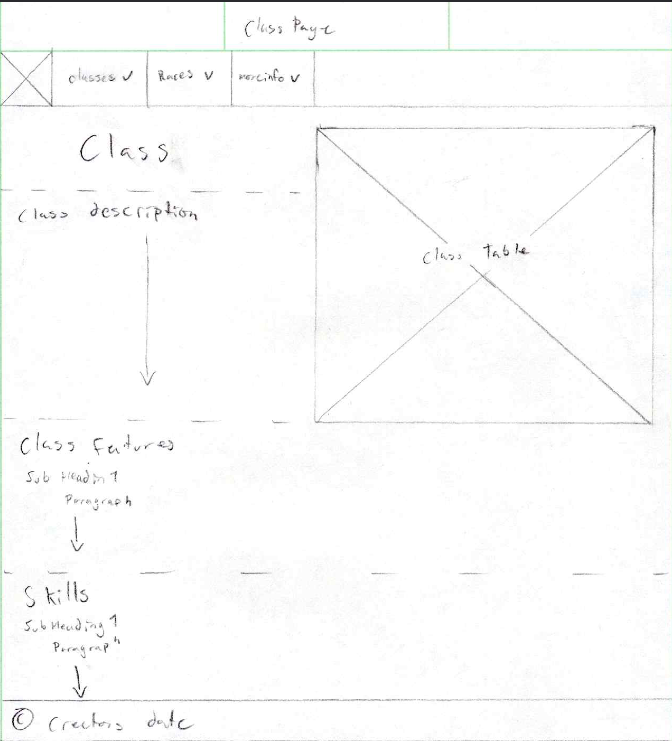 Class Page
classes v Races v moreinfo v
Class
Class description
Class Table
Class Features
Sub Heading 1
Paragraph
Skills
Sub Heading 1
Paragraph
© Creators date